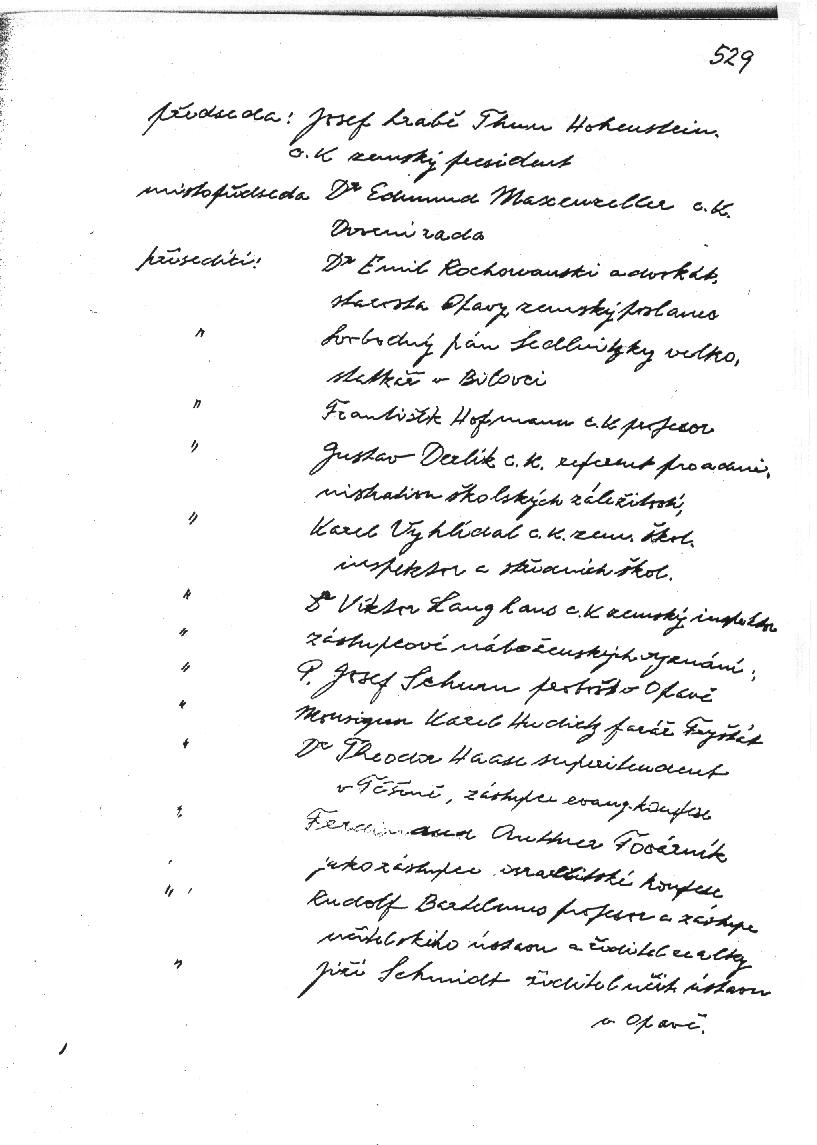 529
předseda: Josef hrabě Thun Hohenstein,
c.K zemský president
místopředseda Dr Edmund c.K.
Dvorní rada
přísedící: Dr Emil Rochowanski advokát,
starosta Opavy, zemský poslanec
" Svobodný pán Sedlnitzky velko,
statkář v Bílovci
" František Hofmann c.K profesor
" Gustav Derlik c.K. referent pro admi,
nistrativu školských záležitostí,
" Karel Vyhlídal c.K. zem. škol.
inspektor a středních škol.
" Dr Viktor Langhans c.K zemský inspektor
" zástupcové náboženských vyznání;
" P. Josef Schum probošt v Opavě
" Monsignor Karel Hudietz farář Fryšták
" Dr Theodor Haase superitendent
v Těšíně, zástupce evang. konfese
" Ferdinand Továrník
jako zástupce israelitské konfese
" Rudolf Bartelmus profesor a zástupc
učitelského ústavu a ředitel realky
" Jiří Schmidt ředitel učit. ústavu
v Opavě.